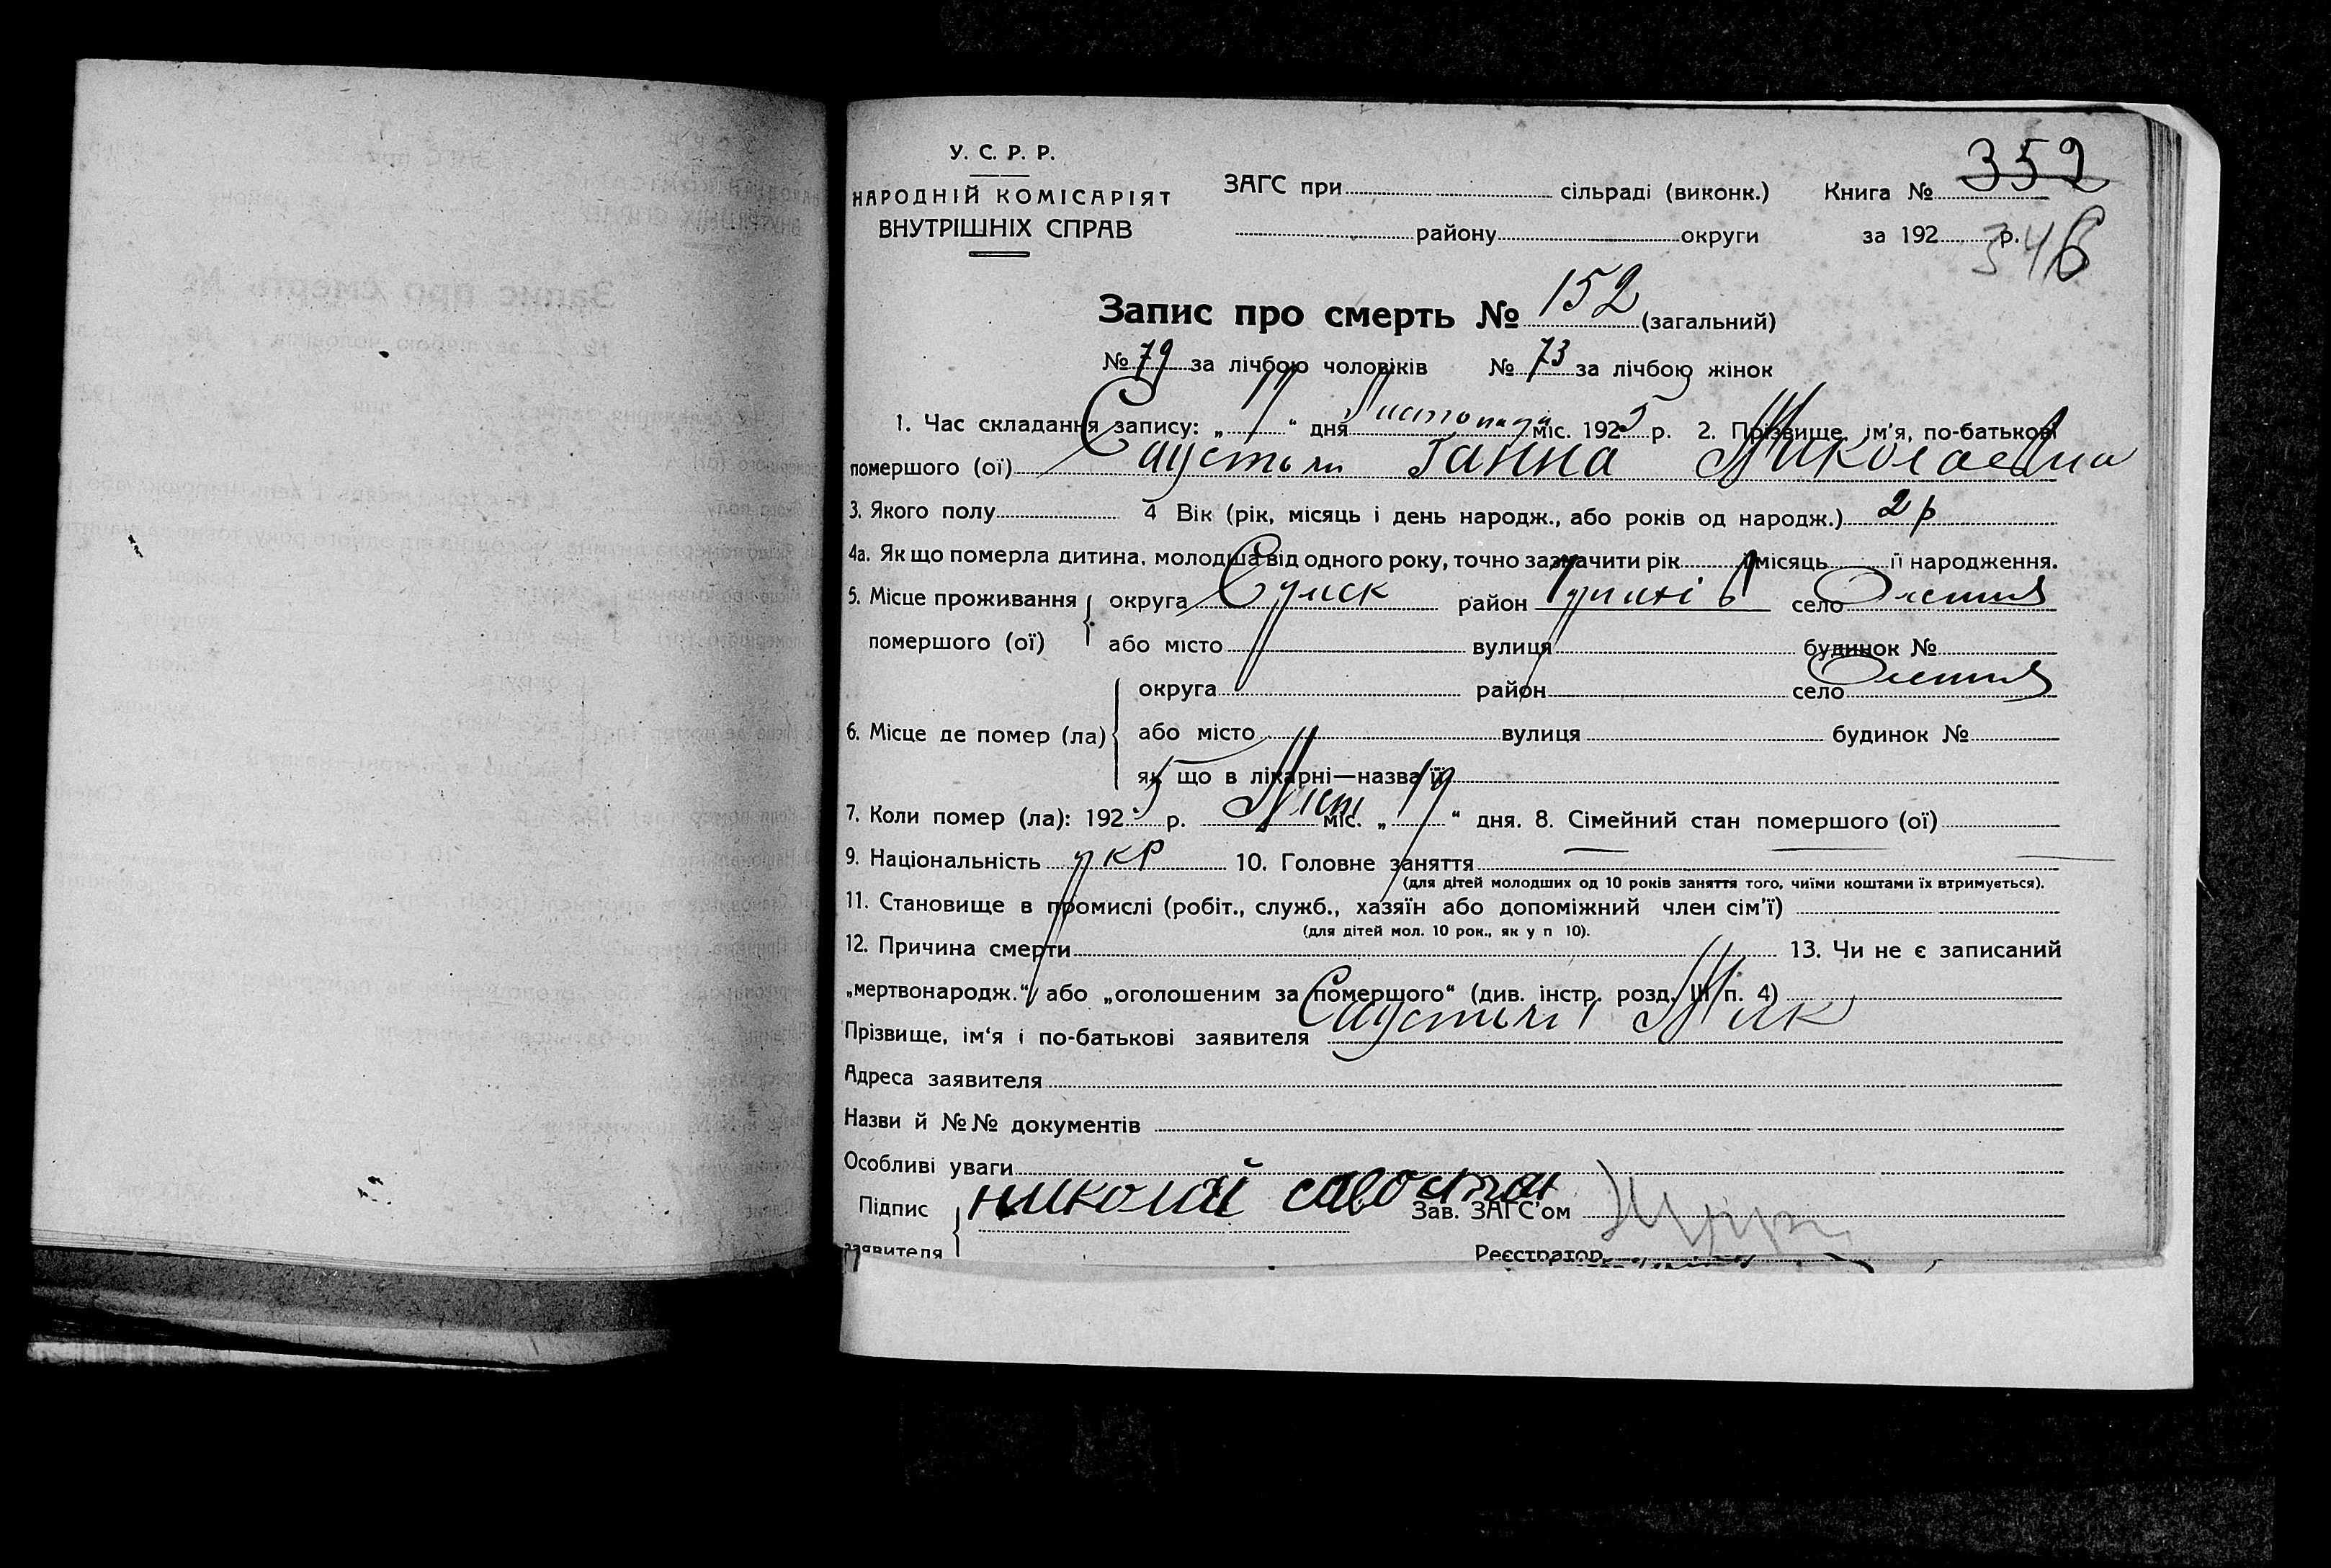 352
У. С. Р. Р.
НАРОДНІЙ КОМІСАРІЯТ
ВНУТРІШНІХ СПРАВ
ЗАГС при сільраді (виконк.) Книга №
району округи за 192 р.
346
Запис про смерть № 152 (загальний)
№ 79 за лічбою чоловіків № 73 за лічбою жінок
1. Час складання запису: „ “ дня Листопада міс. 1925 р. 2. Прізвище, ім'я, по-батькові
помершого (ої) Ганна Миколаевна
3. Якого полу 4 Вік (рік, місяць і день народж., або років од народж.) 2 р
4а. Як що померла дитина, молодша від одного року, точно зазначити рік і місяць її народження.
5. Місце проживання округа Сумск район село
помершого (ої) або місто вулиця будинок №
округа район село
6. Місце де помер (ла) або місто вулиця будинок №
як що в лікарні—назва її
7. Коли помер (ла): 1925 р. Лист міс. „19“ дня. 8. Сімейний стан помершого (ої)
9. Національність укр 10. Головне заняття
(для дітей молодших од 10 років заняття того, чиїми коштами їх втримується).
11. Становище в промислі (робіт., служб., хазяїн або допоміжний член сім'ї)
(для дітей мол. 10 рок., як у п 10).
12. Причина смерти 13. Чи не є записаний
„мертвонародж.“ або „оголошеним за помершого“ (див. інстр. розд. III п. 4)
Прізвище, ім'я і по-батькові заявителя Мик
Адреса заявителя
Назви й №№ документів
Особливі уваги
Підпис николай Зав. ЗАГС'ом
заявителя Реєстратор